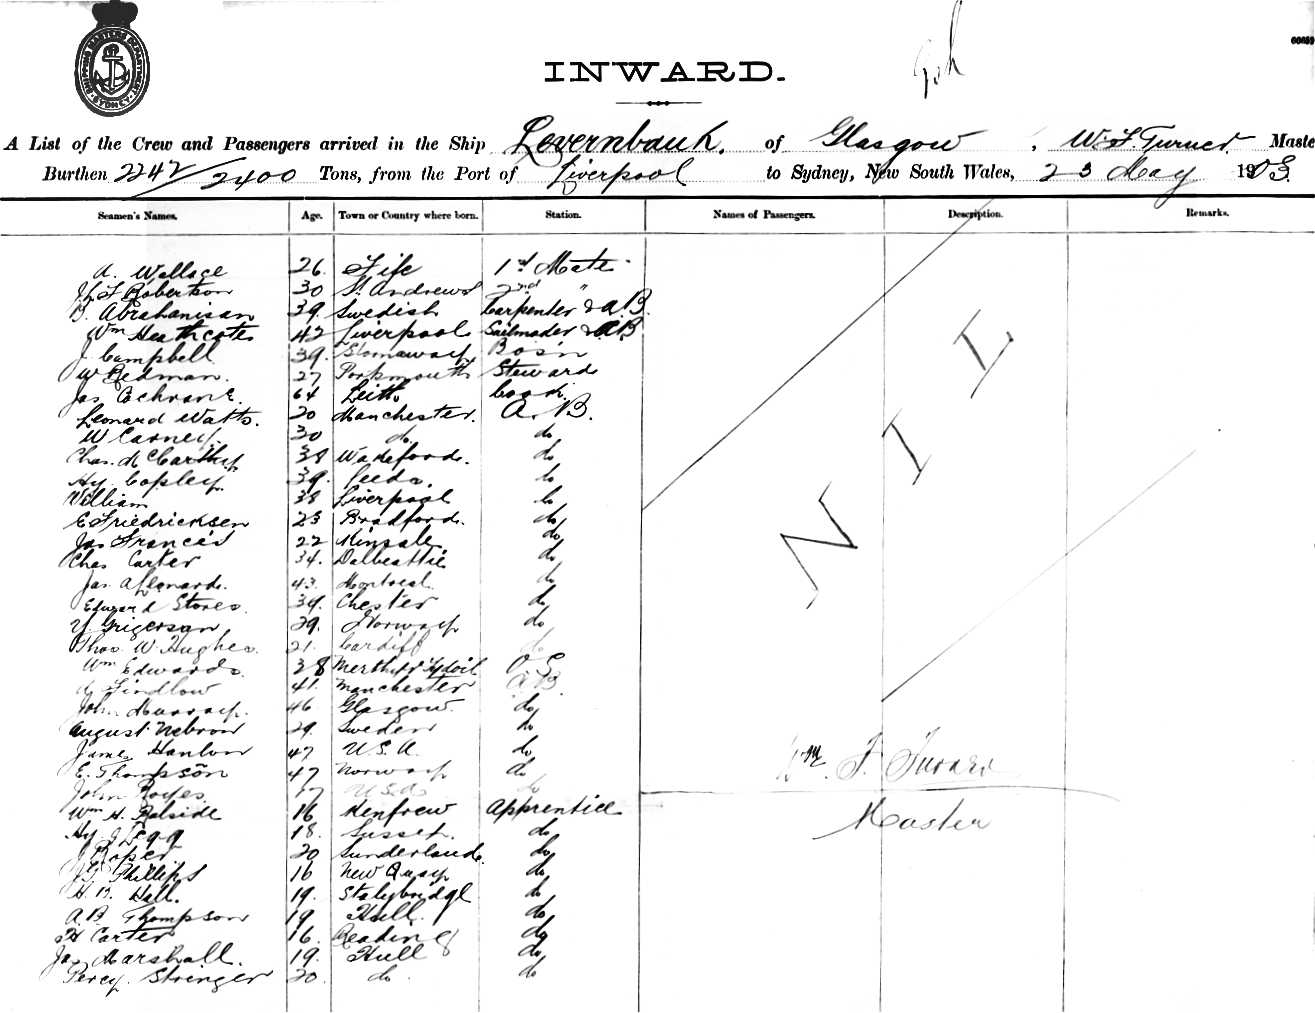 SHIPPING MASTERS DEPARTMENT SYDNEY
INWARD.
A List of the Crew and Passengers arrived in the Ship Levernbank. of Glasgow, W. F. Turner Maste
Burthen 2242/2400 Tons, from the Port of Liverpool to Sydney, New South Wales, 23 May 1903.
Seamen's Names. Age. Town or Country where born. Station. Names of Passengers. Description. Remarks.
A. Wallace 26. Fife 1st Mate
Robertson 30 St Andrews 2nd "
B. Abrahamson 39. Swedish Carpenter & A.B.
Wm Heathcote 42 Liverpool Sailmaker & A.B.
J. Campbell 39. Stornaway Bosn
W Redman. 27 Portsmouth Steward
Jas Cochrane. 64 Leith Cook.
Leonard Watts. 20 Manchester. A.B.
W Carney. 30 do. do
Chas. McCarthy 38 do
Hy Copley 39. Leeds. do
William 38 Liverpool do
E Friedricksen 23 Bradford. do
Jas Francis 22 Kinsale do
Chas Carter 34. Dalbeattie do
Jas. A Leonard. 43. Montreal do
Edward Stores. 34. Chester do
Y. Grigerson 29. Norway do
Thos W Hughes. 21. Cardiff do
Wm Edwards. 38 Merthyr Tydvil O.S.
Findlow 41. Manchester A.B.
John Murray. 46 Glasgow. do
August 29. Sweden do
James Hanlon 47 U.S.A. do
E. Thompson 47 Norway do
John USA do
Wm H. 16 Renfrew Apprentice
Hy J Legg 18. Sussex. do
J Roper 20 Sunderland. do
J.G. Phillips 16 New Quay do
H. B. Hall. 19. Stalybridge do
A.B Thompson 19 Hull. do
H Carter 16. Reading do
Jas Marshall. 19. Hull do
Percy Stringer 20. do. do
NIL
Wm. F. Turner
Master